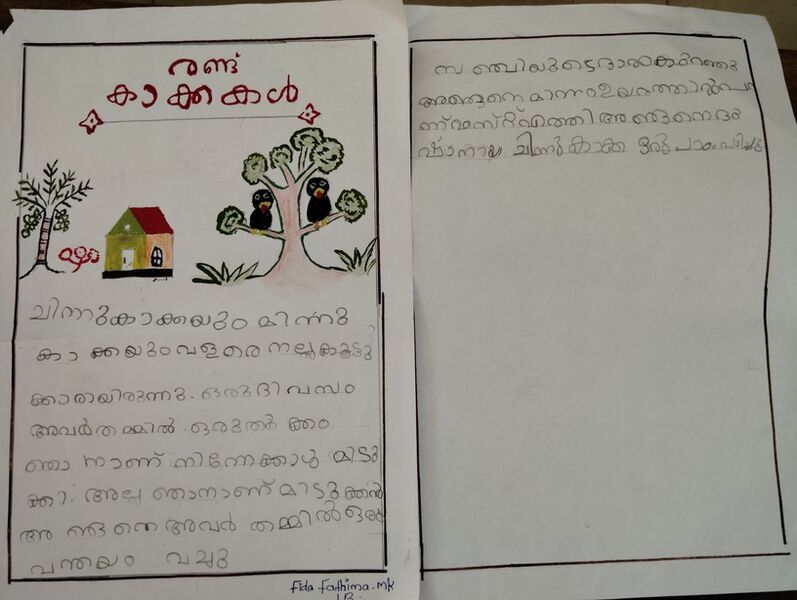 രണ്ട്
കാക്കകൾ
ചിന്നുകാക്കയും മിന്നു
കാക്കയും വളരെ നല്ല കൂട്ടു
ക്കാരായിരുന്നു. ഒരു ദിവസം
അവർ തമ്മിൽ ഒരു തർക്കം
ഞാനാണ് നിന്നേക്കാൾ മിടു
ക്കി. അല്ല ഞാനാണ് മിടുക്കൻ
അങ്ങനെ അവർ തമ്മിൽ ഒരു
പന്തയം വച്ചു
Fida Fathima.mk
1B
സഞ്ചിയുടെ ഭാരം കുറഞ്ഞു
അങ്ങനെ മിന്നം ഉയരത്തിൽ പറ
അങ്ങനെ ദു
ഷ്ടനായ ചിന്നുകാക്ക ഒരു പാഠം പഠിച്ചു